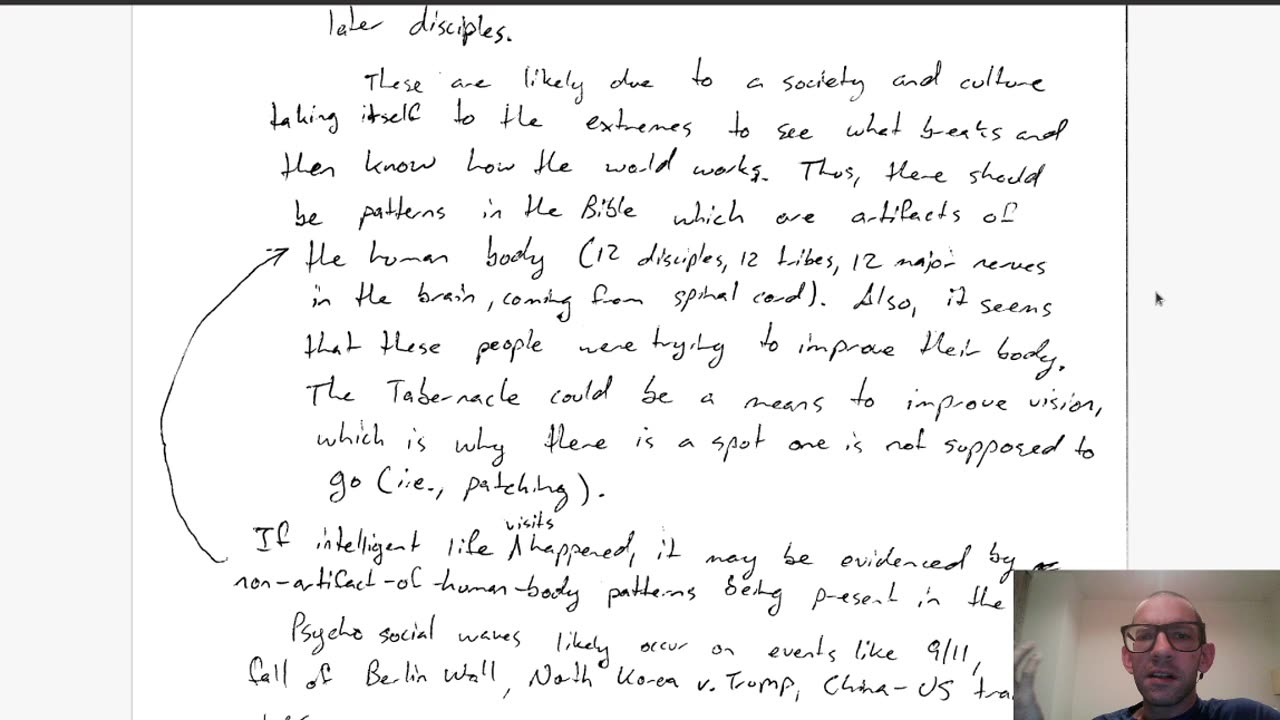 later disciples.
These are likely due to a society and culture
taking itself to the extremes to see what breaks and
then know how the world works. Thus, there should
be patterns in the Bible which are artifacts of
the human body (12 disciples, 12 tribes, 12 major nerves
in the brain, coming from spinal cord). Also, it seems
that these people were trying to improve their body.
The Tabernacle could be a means to improve vision,
which is why there is a spot one is not supposed to
go (i.e., patching).
visits
If intelligent life ∧ happened, it may be evidenced by
non-artifact-of-human-body patterns being present in the
Psycho social waves likely occur on events like 9/11,
fall of Berlin Wall, North Korea v. Trump, China-US